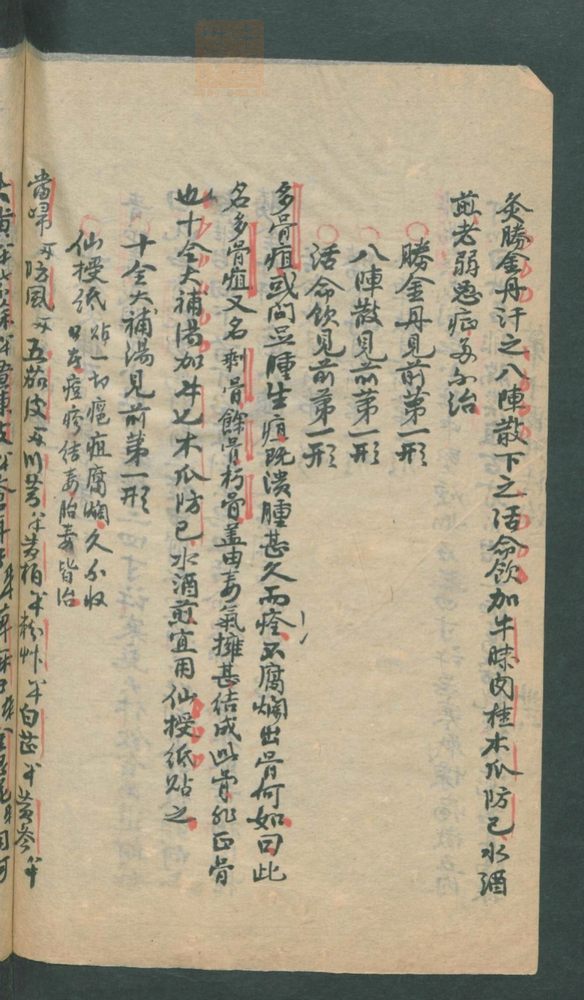 灸勝金丹汗之八陣散下之活命飲加牛膝肉桂木瓜防己水酒
煎老弱患症多不治
勝金丹見前第一形
八陣散見前第一形
活命飲見前第一形
多骨疽或问足腫生疽既潰腫甚久而痊不腐爛出骨何如曰此
名多骨疽又名剩骨餘骨朽骨盖由毒氣擁甚结成此骨非正骨
也十全大補湯加牛七木瓜防己水酒煎宜用仙授紙貼之
十全大補湯見前第一形
仙授紙 貼一切瘟疽腐爛久不收
口及痘疹结毒胎毒皆治
當歸 防風 五茄皮 川芎 黄柏 粉艸 白芷 黄参